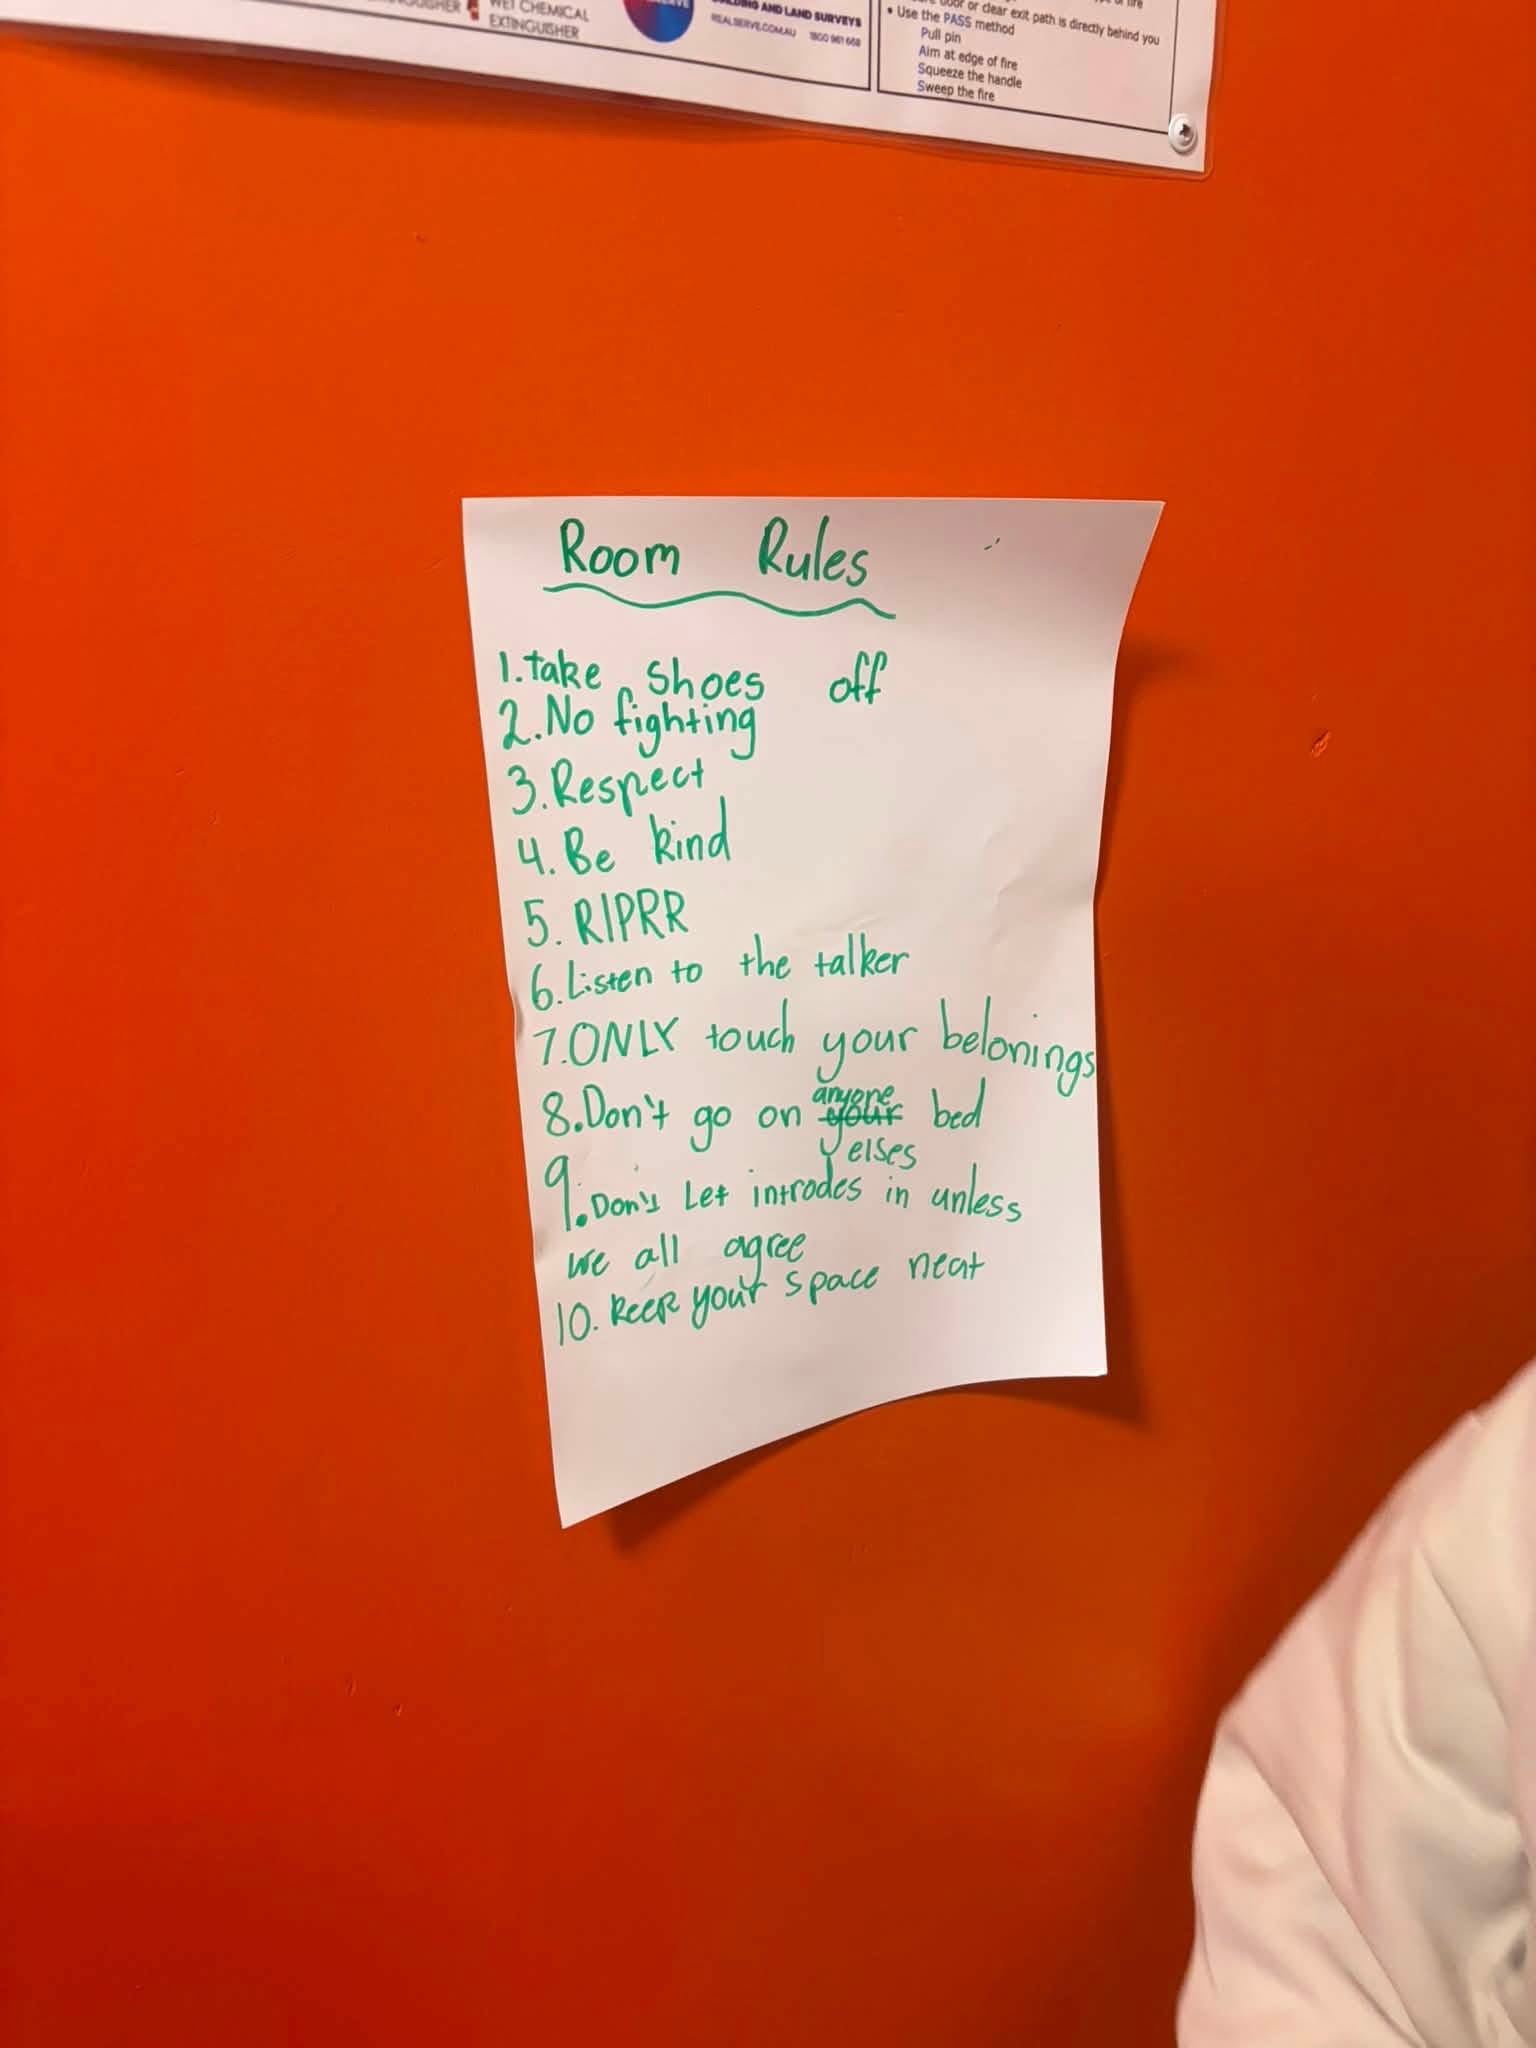 WET CHEMICAL
EXTINGUISHER
BUILDING AND LAND SURVEYS
REALSERVE.COM.AU 1800 961 668
door or clear exit path is directly behind you
• Use the PASS method
Pull pin
Aim at edge of fire
Squeeze the handle
Sweep the fire
Room Rules
1. take shoes off
2. No fighting
3. Respect
4. Be kind
5. RIPRR
6. Listen to the talker
7. ONLY touch your belonings
8. Don't go on anyone elses bed
9. Don't Let introdes in unless
we all agree
10. Keep your space neat